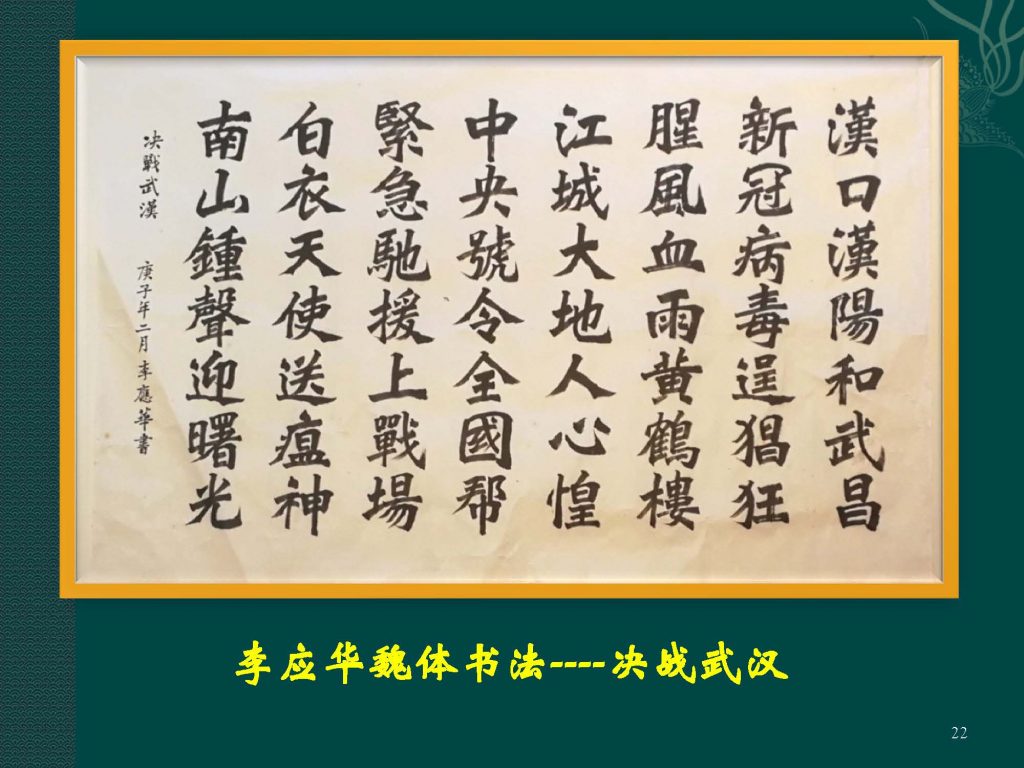 漢口漢陽和武昌
新冠病毒逞猖狂
腥風血雨黄鶴樓
江城大地人心惶
中央號令全國帮
緊急馳援上戰場
白衣天使送瘟神
南山鍾聲迎曙光
决戰武漢 庚子年二月李應華書
李应华魏体书法----决战武汉
22